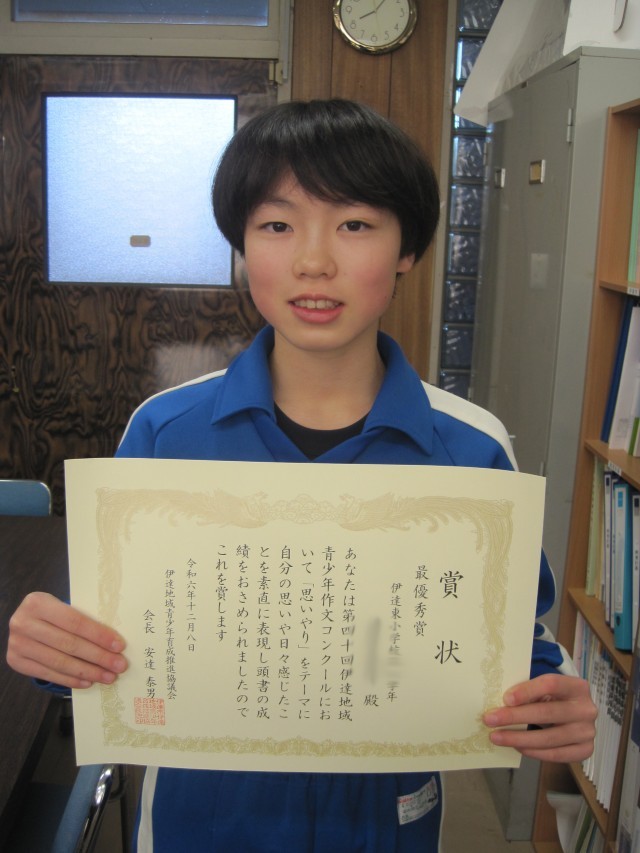 賞状
最優秀賞
伊達東小学校 学年
殿
あなたは第四十回伊達地域
青少年作文コンクールにお
いて「思いやり」をテーマに
自分の思いや日々感じたこ
とを素直に表現し頭書の成
績をおさめられましたので
これを賞します
令和六年十二月八日
伊達地域青少年育成推進協議会
会長 安達 泰男